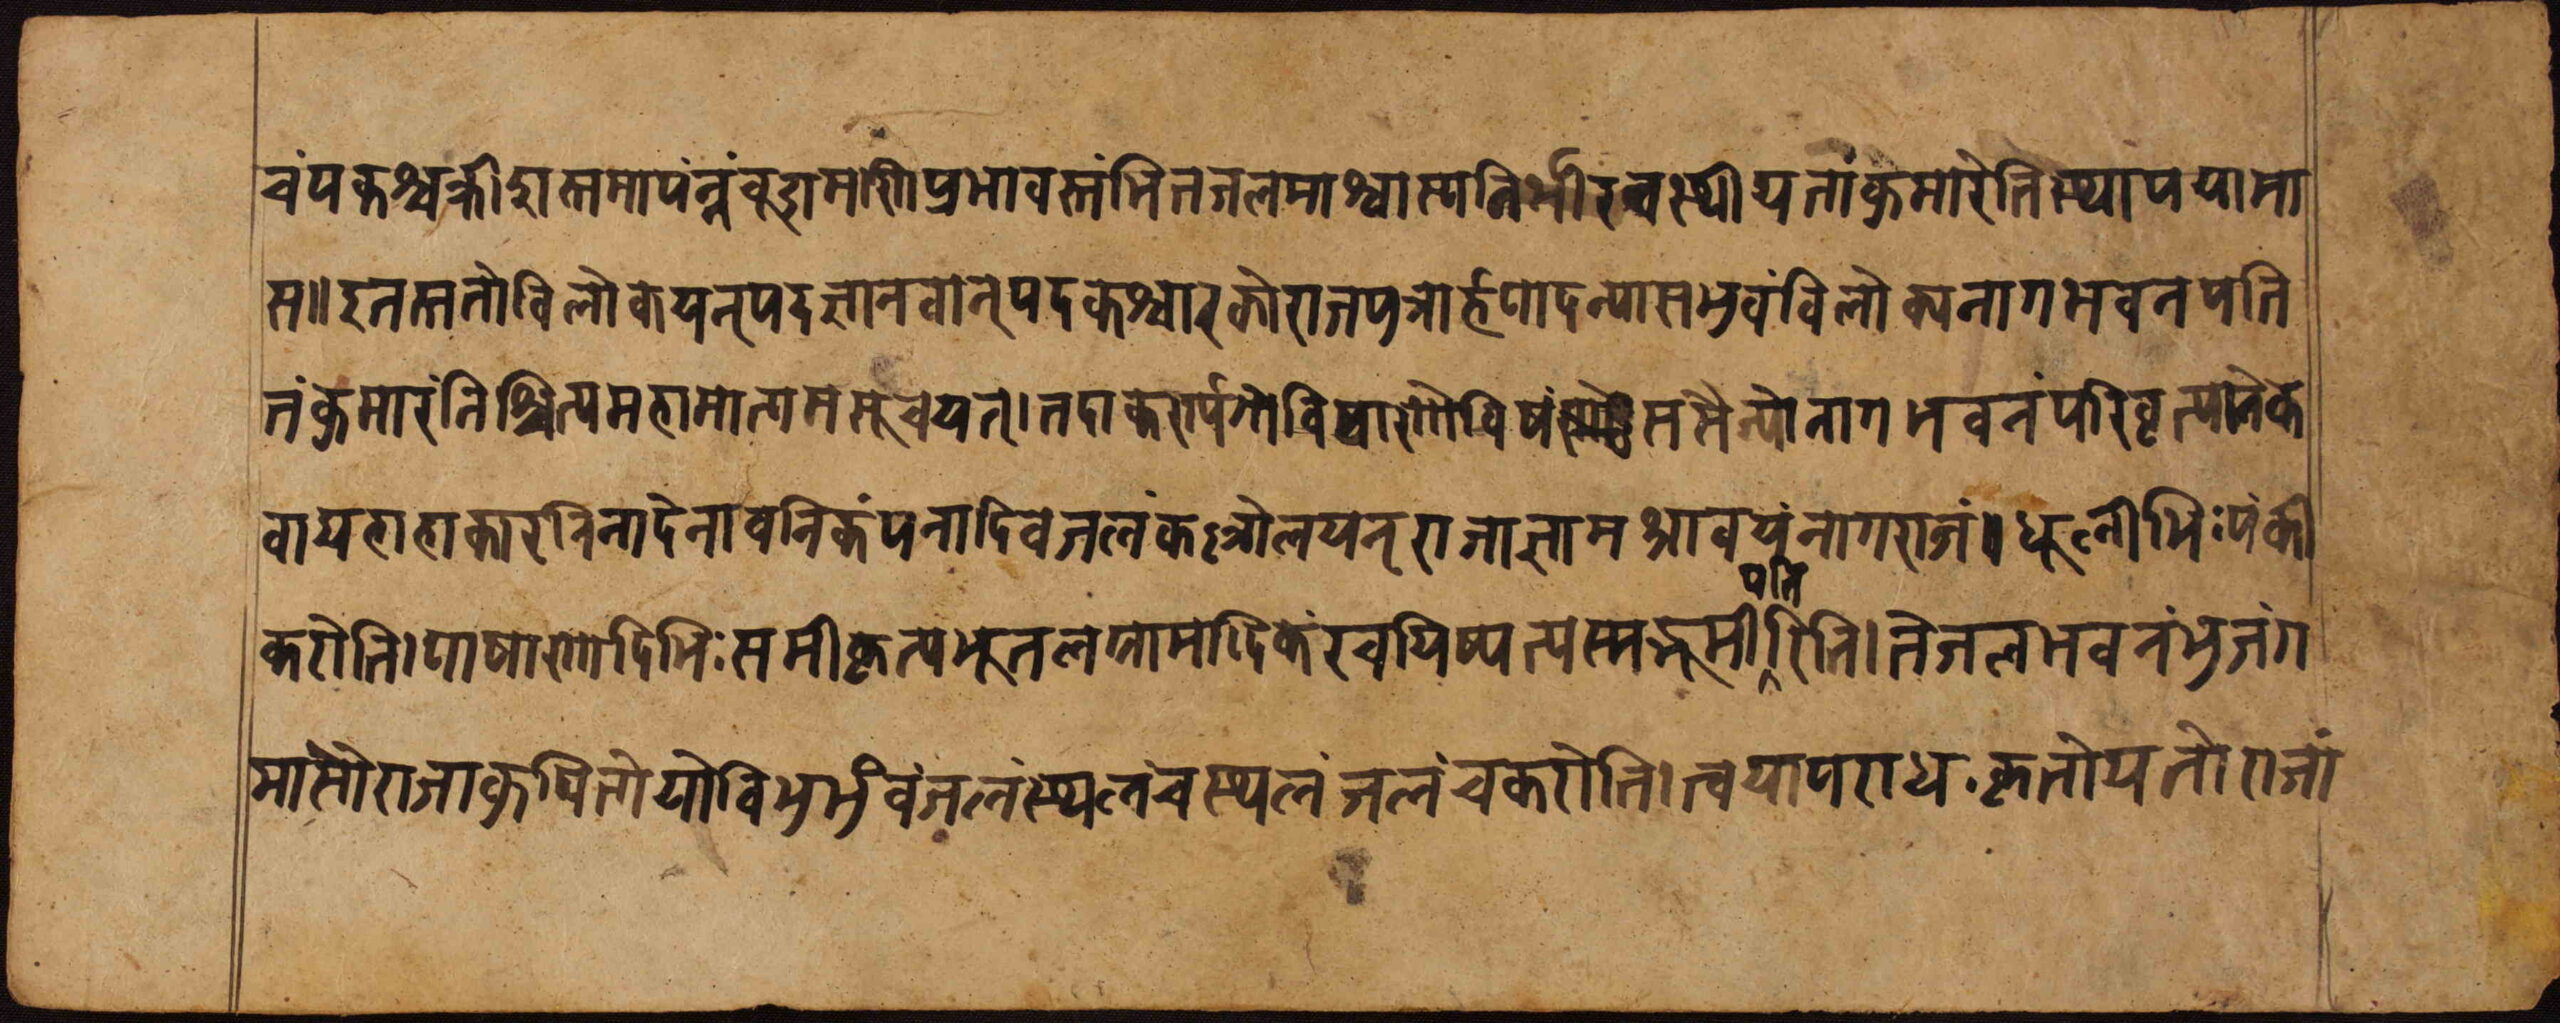 चंपकश्चक्रीडासमापंन्नंचूडामणीप्रभावस्तंभितजलमाश्वास्यनिर्भीरत्वस्थीयतांकुमारेतिस्थापयामा
स॥इतस्ततोविलोकयन्पदज्ञानवान्पदकश्चारकोराजपुत्रार्हणोदन्यासभुवंविलोक्यनागभवनपति
तंकुमारंनिश्चित्यमहामात्यमसूचयत्।तदाकर्ण्य विषाणो ससैन्योनागभवनंपरिवृत्यानेक
वाद्यहाहाकारनिनादेनावनिकंपनादिवजलंकल्लोलयन्राजाज्ञामश्रावयंनागराजं॥धूलीभिःपंकी
करोति।पाषाणादिभिःसमीकृत्यभूतलग्रामादिकंरचयिष्यत्यस्मद्भूमीपतिरिति।तेजलभवनंभुजंग
मासौराजाकुपितोयोविभुर्भुवंजलंस्थलंचस्थलंजलंचकरोति।त्वयापराधःकृतोयतोराज्ञां